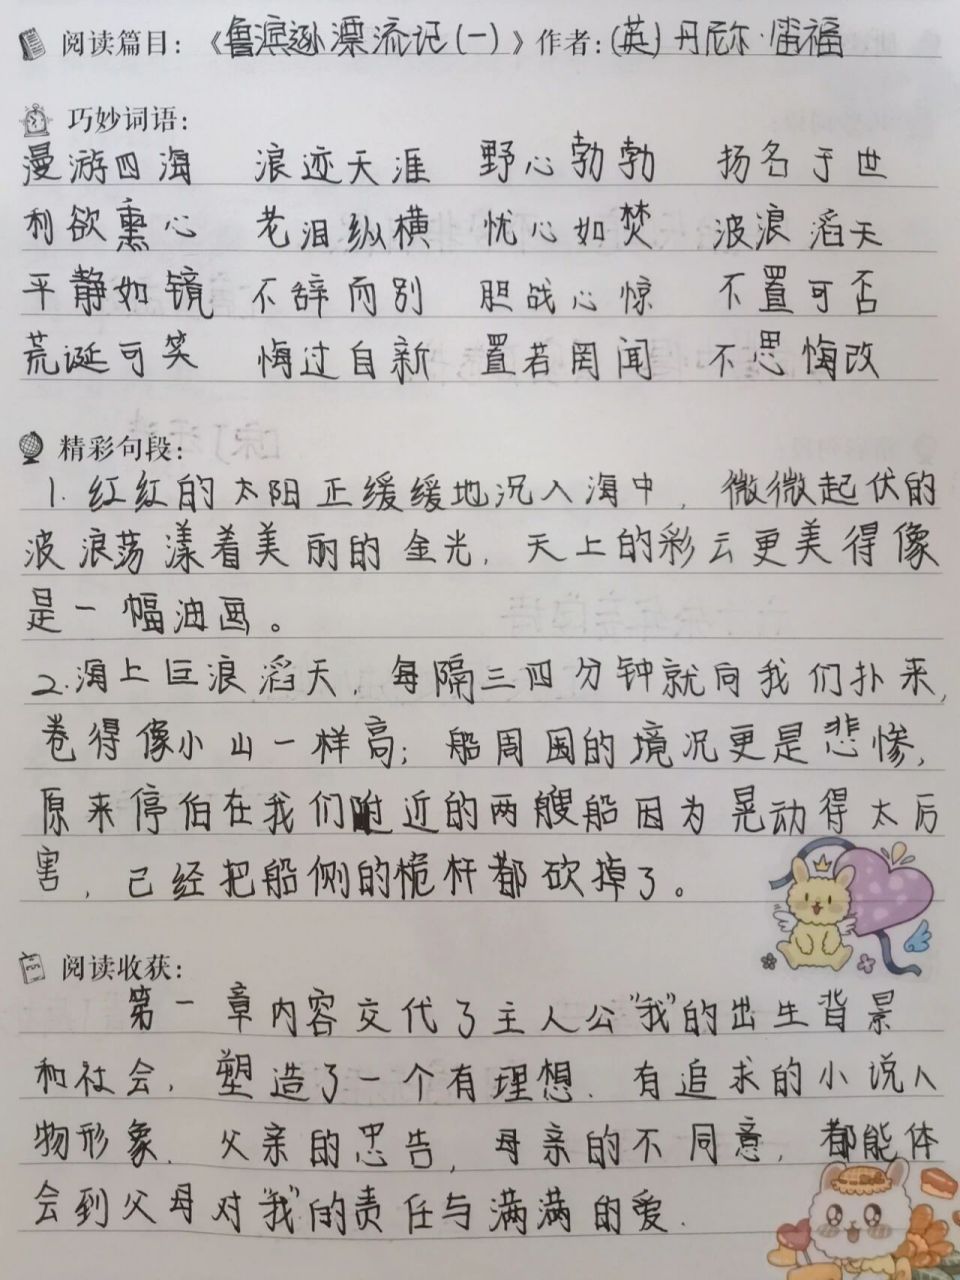 阅读篇目：《鲁滨逊漂流记(一)》作者：(英)丹尼尔·笛福
巧妙词语：
漫游四海 浪迹天涯 野心勃勃 扬名于世
利欲熏心 老泪纵横 忧心如焚 波浪滔天
平静如镜 不辞而别 胆战心惊 不置可否
荒诞可笑 悔过自新 置若罔闻 不思悔改
精彩句段：
1. 红红的太阳正缓缓地沉入海中，微微起伏的
波浪荡漾着美丽的金光，天上的彩云更美得像
是一幅油画。
2.海上巨浪滔天，每隔三四分钟就向我们扑来，
卷得像小山一样高；船周围的境况更是悲惨，
原来停伯在我们附近的两艘船因为晃动得太厉
害，已经把船侧的桅杆都砍掉了。
阅读收获：
第一章内容交代了主人公"我"的出生背景
和社会，塑造了一个有理想、有追求的小说人
物形象、父亲的忠告，母亲的不同意，都能体
会到父母对"我"的责任与满满的爱．